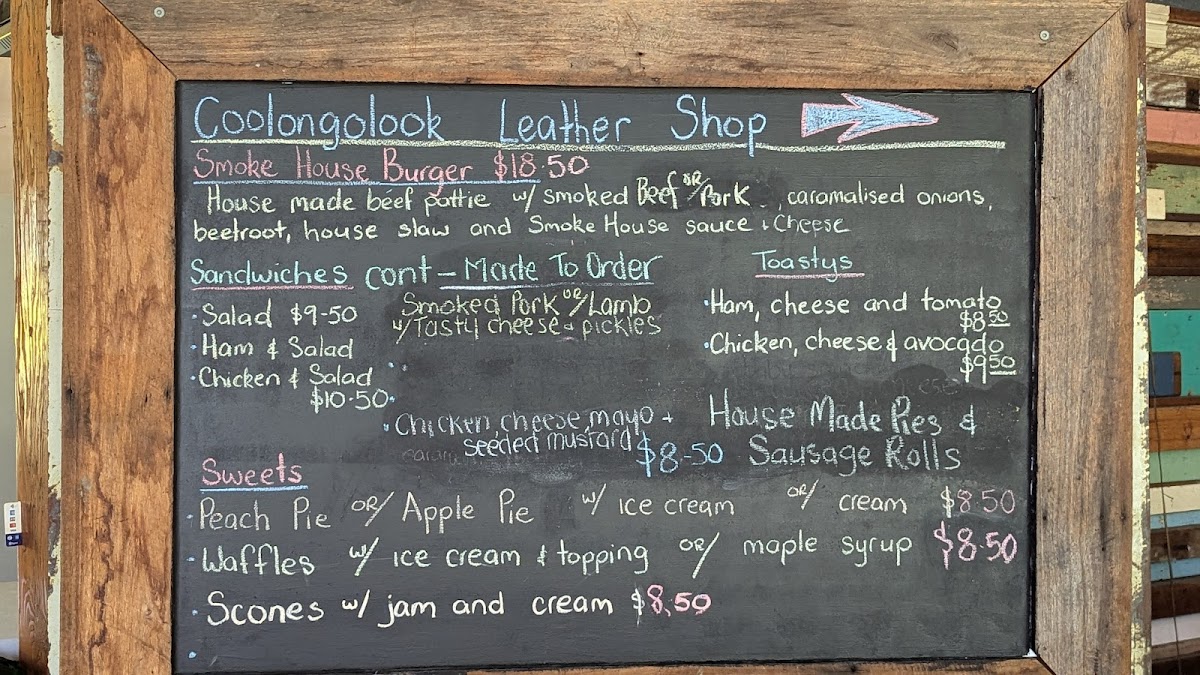 Coolongolook Leather Shop
Smoke House Burger $18.50
House made beef pattie w/ smoked Beef OR/ Pork , caramalised onions,
beetroot, house slaw and Smoke House sauce & Cheese
Sandwiches cont - Made To Order
· Salad $9-50
· Ham & Salad
· Chicken & Salad
$10.50
Smoked Pork OR/ Lamb
w/ Tasty cheese & pickles
· Chicken, cheese, mayo +
seeded mustard $8-50
Toastys
· Ham, cheese and tomato
$8.50
· Chicken, cheese & avocado
$9.50
House Made Pies &
Sausage Rolls
Sweets
· Peach Pie OR/ Apple Pie w/ ice cream OR/ cream $8.50
· Waffles w/ ice cream & topping OR/ maple syrup $8.50
· Scones w/ jam and cream $8.50